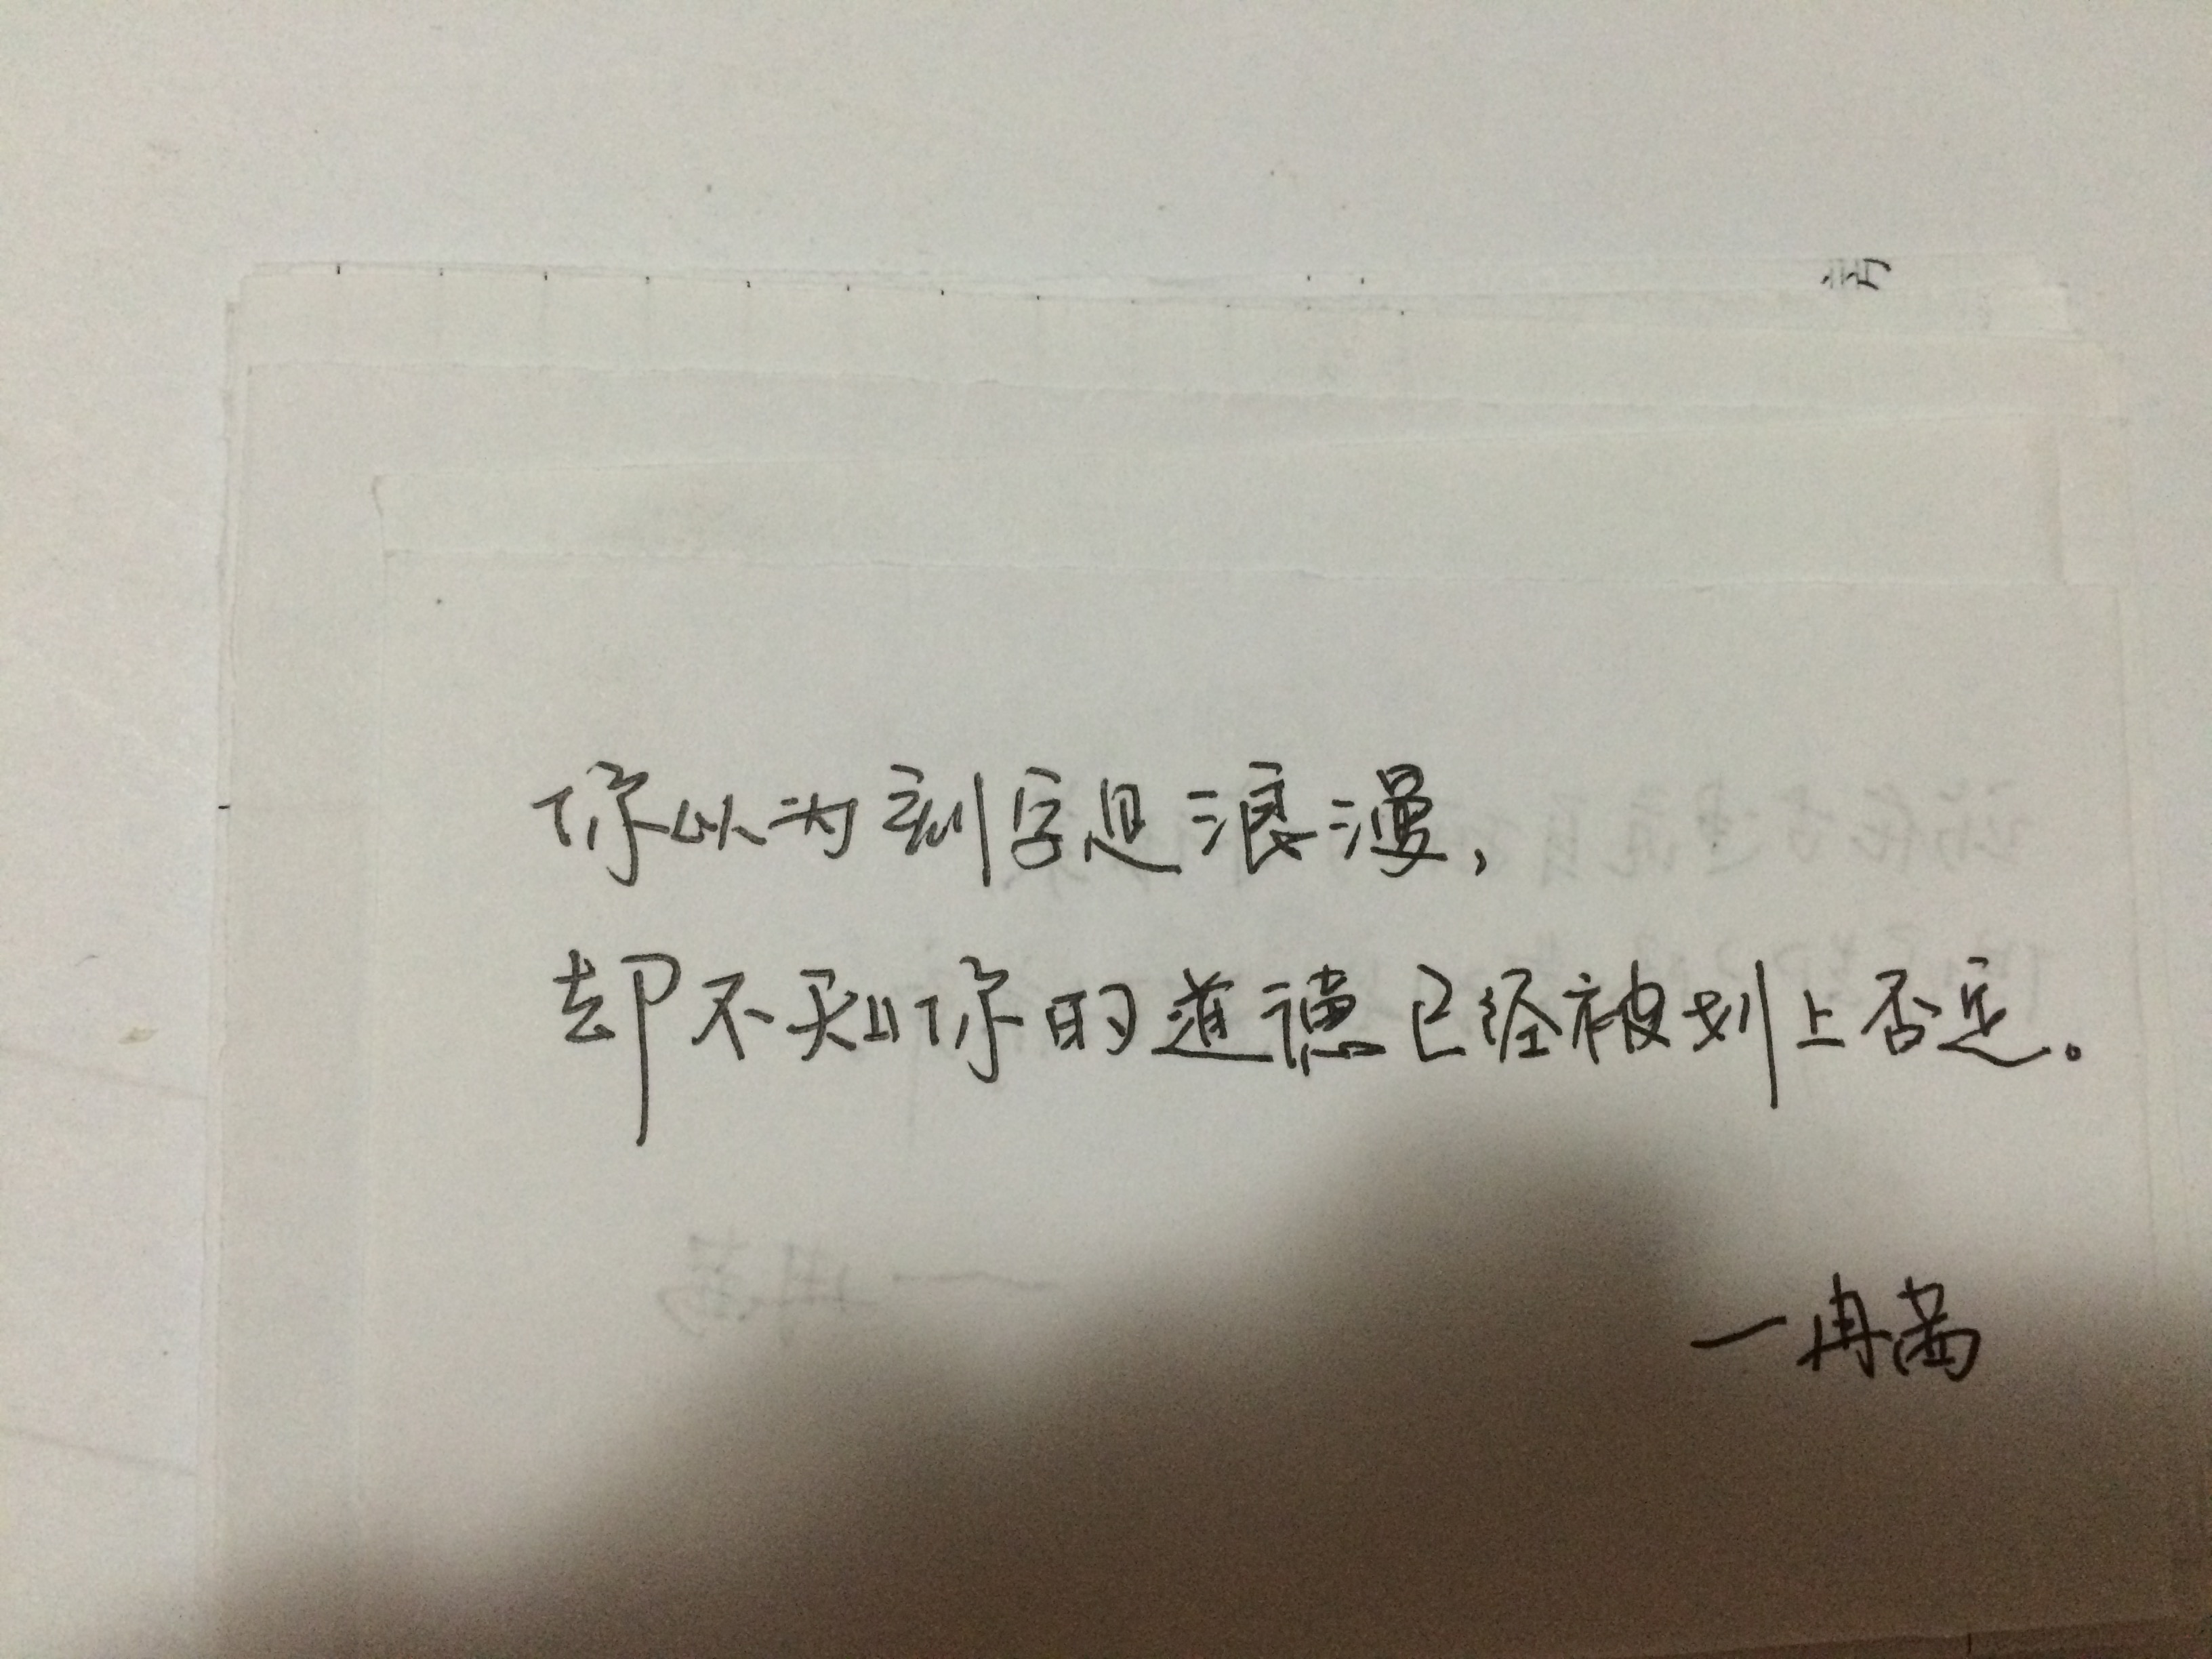 你以为刻字是浪漫,
却不知你的道德已经被划上否定。
一冉茜